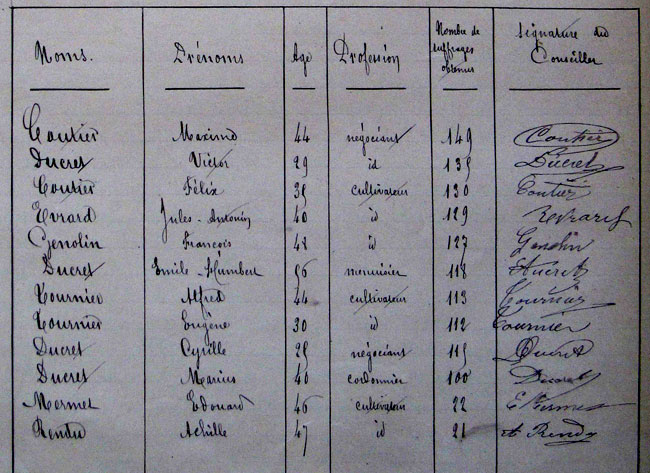 Noms. Prénoms Age Profession Nombre de suffrages obtenus Signature du Conseiller
Coutier Maxime 44 négociant 149 Coutier
Ducret Victor 29 id 135 Ducret
Coutier Félix 35 cultivateur 130 Coutier
Evrard Jules-Antonin 40 id 129 Evrard
Genolin François 48 id 127 Genolin
Ducret Emile-Humbert 56 menuisier 118 Ducret
Tournier Alfred 44 cultivateur 113 Tournier
Tournier Eugène 30 id 112 Tournier
Ducret Cyrille 25 négociant 115 Ducret
Ducret Marius 40 cordonnier 100 Ducret
Mermet Edouard 46 cultivateur 22 E Mermet
Rendu Achille 47 id 21 A Rendu